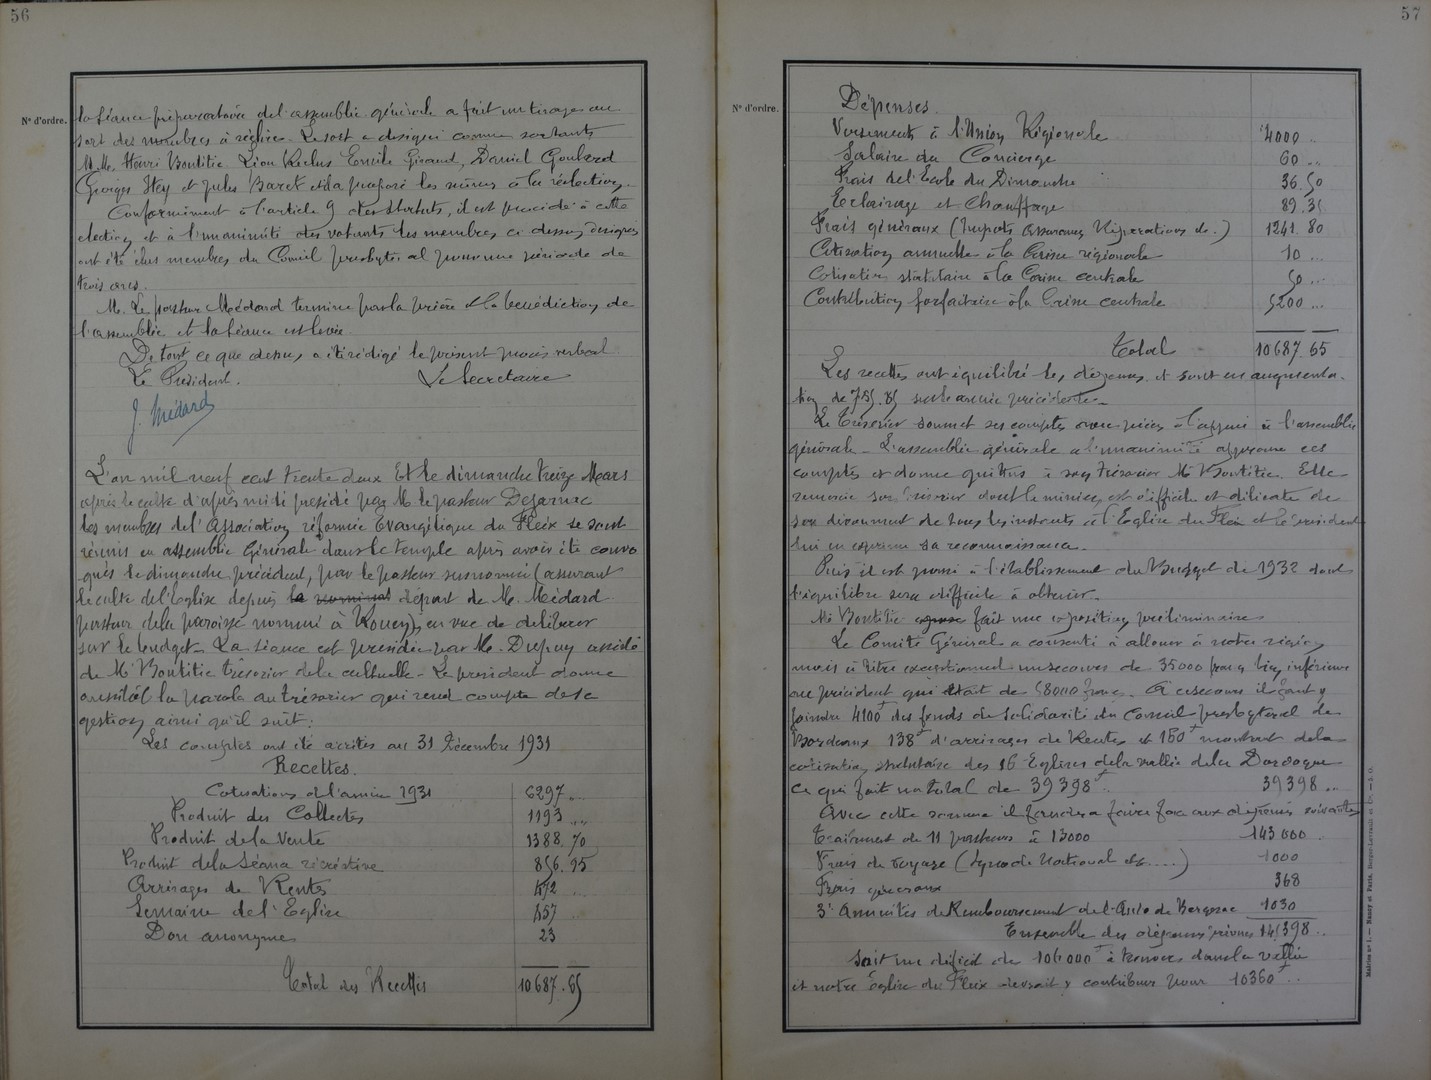 56
N° d'ordre.
la séance préparatoire de l'assemblée générale a fait un tirage au
sort des membres à réélire. Le sort a désigné comme sortants
M.M. Henri Boutitie Léon Reclus Emile Giraud, Daniel Goulard
Georges Itey et Jules Baret et il a proposé les mêmes à la réélection.
Conformément à l'article 9 des Statuts, il est procédé à cette
élection et à l'unanimité des votants les membres ci dessus désignés
ont été élus membres du Conseil presbytéral pour une période de
trois ans.
M. Le pasteur Médard termine par la prière et la bénédiction de
l'assemblée et la séance est levée.
De tout ce que dessus a été rédigé le présent procès verbal.
Le Président. Le Secrétaire
J. Médard
L'an mil neuf cent trente deux Et le dimanche treize Mars
après le culte d'après midi présidé par M. le pasteur Dejarnac
les membres de l'Association réformée Evangélique du Fleix se sont
réunis en assemblée Générale dans le temple après avoir été convo
qués le dimanche précédent, par le pasteur susnommé (assurant
le culte de l'Eglise depuis le départ de M. Médard
pasteur de la paroisse nommé à Rouen), en vue de délibérer
sur le budget. La séance est présidée par M. Dupuy assisté
de Mr Boutitie trésorier de la cultuelle. Le président donne
aussitôt la parole au trésorier qui rend compte de sa
gestion ainsi qu'il suit:
Les comptes ont été arrêtés au 31 Décembre 1931
Recettes.
Cotisations de l'année 1931 6297 ..
Produit des Collectes 1193 ..
Produit de la Vente 1388.70
Produit de la Séance récréative 856.95
Arrérages de Rentes 472 ..
Semaine de l'Eglise 457 ..
Don anonyme 23
Total des Recettes 10687.65
57
N° d'ordre.
Dépenses.
Versements à l'Union Régionale 4000 ..
Salaire du Concierge 60 ..
Frais de l'Ecole du Dimanche 36.50
Eclairage et Chauffage 89.35
Frais généraux (Impôts Assurances Réparations etc.) 1241.80
Cotisation annuelle à la Caisse régionale 10 ...
Cotisation statutaire à la Caisse centrale 50 ...
Contribution forfaitaire à la Caisse centrale 5200 ...
Total 10687 65
Les recettes ont équilibré les dépenses et sont en augmenta-
tion de 755.85 sur l'année précédente.
Le Trésorier soumet ses comptes avec pièces à l'appui à l'assemblée
générale. L'assemblée générale à l'unanimité approuve ces
comptes et donne quittus à son trésorier Mr Boutitie. Elle
remercie son trésorier dont la mission est difficile et délicate de
son dévouement de tous les instants à l'Eglise du Fleix et le président
lui en exprime sa reconnaissance.
Puis il est passé à l'établissement du Budget de 1932 dont
l'équilibre sera difficile à obtenir.
Mr Boutitie fait une exposition préliminaire
Le Comité Général a consenti à allouer à notre région
mais à titre exceptionnel un secours de 35000 francs bien inférieure
au précédent qui était de 58000 francs. A ce secours il faut y
joindre 4100f des fonds de Solidarité du Conseil presbytéral de
Bordeaux 138f d'arrérages de Rentes et 160f montant de la
cotisation statutaire des 16 Eglises de la vallée de la Dordogne
Ce qui fait un total de 39398f.. 39398 ..
Avec cette somme il faudra faire face aux dépenses suivantes
Traitement de 11 pasteurs à 13000 143000 .
Frais de voyage (Synode National etc....) 1000
Frais généraux 368
3e Annuités de Remboursement de l'Asile de Bergerac 1030
Ensemble des dépenses prévues 145398..
Soit un déficit de 106000f à trouver dans la vallée
et notre Eglise du Fleix devrait y contribuer pour 10360f..
Mairies n° 1. — Nancy et Paris. Berger-Levrault et Cie